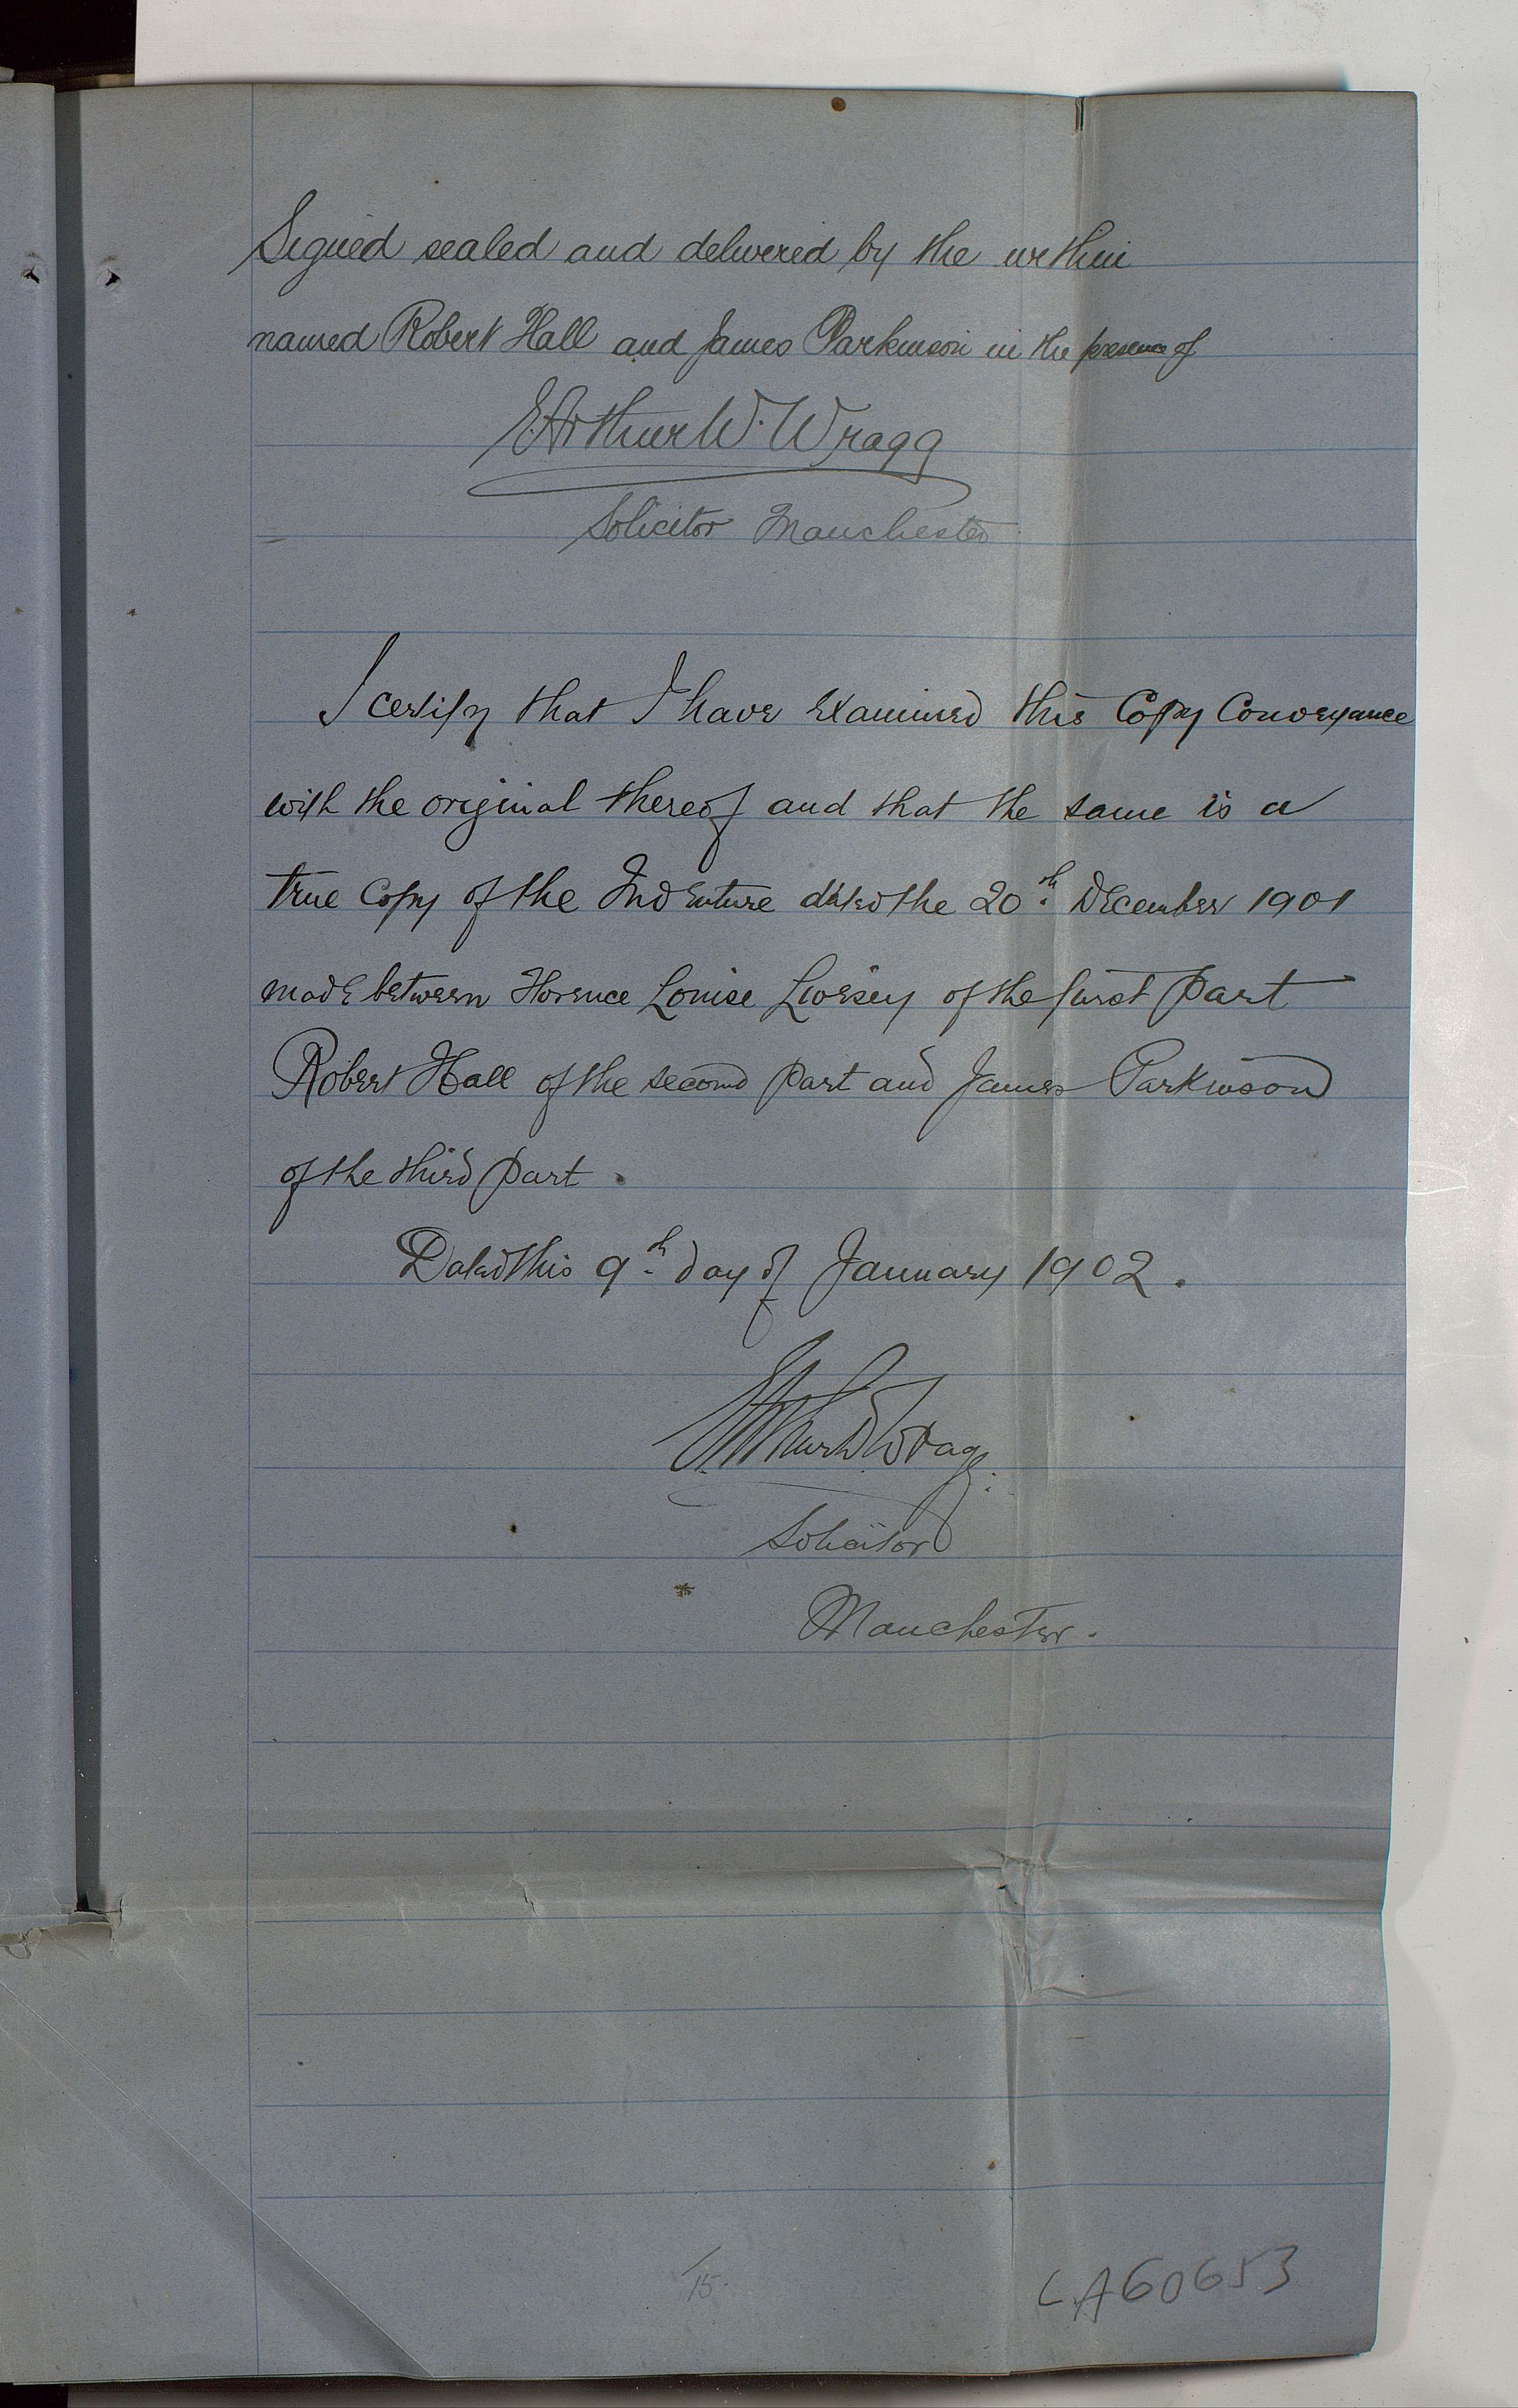 Signed sealed and delivered by the within
named Robert Hall and James Parkinson in the presence of
E. Arthur W. Wragg
Solicitor Manchester
I certify that I have examined this Copy Conveyance
with the original thereof and that the same is a
true Copy of the Indenture dated the 20th December 1901
made between Florence Louise Livesey of the first part
Robert Hall of the second part and James Parkinson
of the third part.
Dated this 9th day of January 1902.
E. Arthur W. Wragg
Solicitor
Manchester.
15.
LA60653